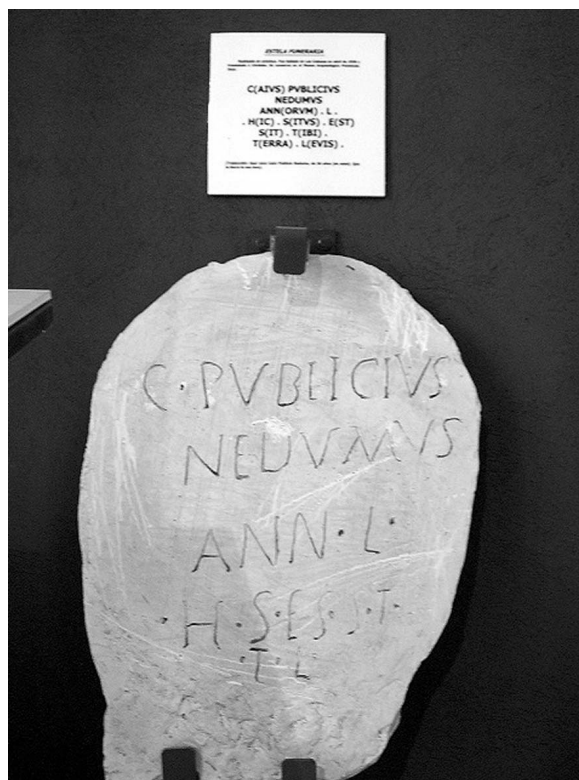 ESTELA FUNERARIA
C(AIVS) PVBLICIVS
NEDUMVS
ANN(ORVM) . L .
. H(IC) . S(ITVS) . E(ST)
S(IT) . T(IBI) .
T(ERRA) . L(EVIS) .
C · PVBLICIVS
NEDVMVS
ANN · L ·
· H · S · E S · S · T ·
· T · L